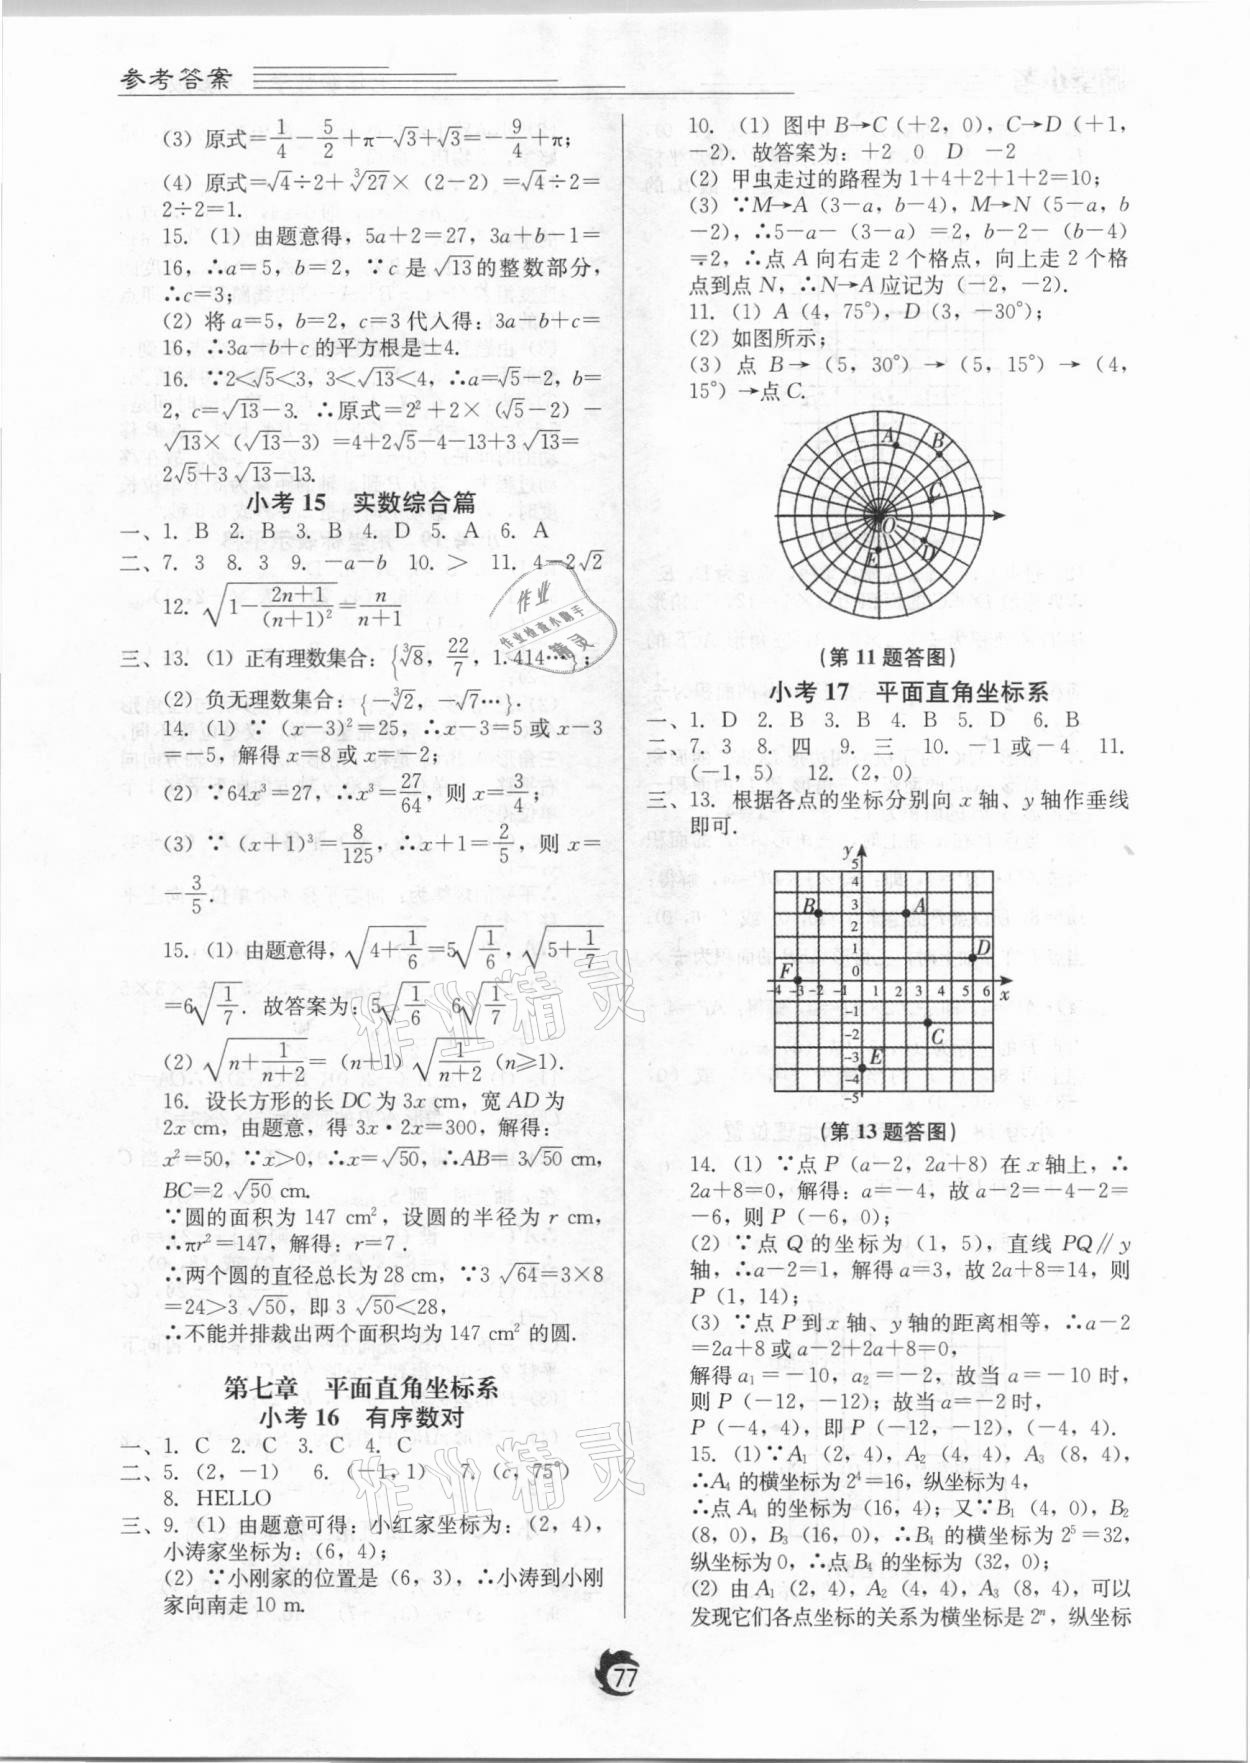 参考答案
(3) 原式=1/4-5/2+π-√3+√3=-9/4+π;
(4) 原式=√4÷2+∛27×(2-2)=√4÷2=
2÷2=1.
15. (1) 由题意得, 5a+2=27, 3a+b-1=
16, ∴a=5, b=2, ∵c 是√13的整数部分,
∴c=3;
(2) 将 a=5, b=2, c=3 代入得: 3a-b+c=
16, ∴3a-b+c 的平方根是±4.
16. ∵2<√5<3, 3<√13<4, ∴a=√5-2, b=
2, c=√13-3. ∴原式=2²+2×(√5-2)-
√13×(√13-3)=4+2√5-4-13+3√13=
2√5+3√13-13.
小考 15 实数综合篇
一、1. B 2. B 3. B 4. D 5. A 6. A
二、7. 3 8. 3 9. -a-b 10. > 11. 4-2√2
12. √(1-(2n+1)/(n+1)²)=n/(n+1)
三、13. (1) 正有理数集合: {∛8, 22/7, 1.414…};
(2) 负无理数集合: {-∛2, -√7…}.
14. (1) ∵(x-3)²=25, ∴x-3=5 或 x-3
=-5, 解得 x=8 或 x=-2;
(2) ∵64x³=27, ∴x³=27/64, 则 x=3/4;
(3) ∵(x+1)³=8/125, ∴x+1=2/5, 则 x=
-3/5.
15. (1) 由题意得, √(4+1/6)=5√(1/6), √(5+1/7)
=6√(1/7). 故答案为: 5√(1/6) 6√(1/7)
(2) √(n+1/(n+2))=(n+1)√(1/(n+2)) (n≥1).
16. 设长方形的长 DC 为 3x cm, 宽 AD 为
2x cm, 由题意, 得 3x·2x=300, 解得:
x²=50, ∵x>0, ∴x=√50, ∴AB=3√50 cm,
BC=2√50 cm.
∵圆的面积为 147 cm², 设圆的半径为 r cm,
∴πr²=147, 解得: r=7.
∴两个圆的直径总长为 28 cm, ∵3√64=3×8
=24>3√50, 即 3√50<28,
∴不能并排裁出两个面积均为 147 cm² 的圆.
第七章 平面直角坐标系
小考 16 有序数对
一、1. C 2. C 3. C 4. C
二、5. (2, -1) 6. (-1, 1) 7. (c, 75°)
8. HELLO
三、9. (1) 由题意可得: 小红家坐标为: (2, 4),
小涛家坐标为: (6, 4);
(2) ∵小刚家的位置是 (6, 3), ∴小涛到小刚
家向南走 10 m.
10. (1) 图中 B→C (+2, 0), C→D (+1,
-2). 故答案为: +2 0 D -2
(2) 甲虫走过的路程为 1+4+2+1+2=10;
(3) ∵M→A (3-a, b-4), M→N (5-a, b
-2), ∴5-a-(3-a)=2, b-2-(b-4)
=2, ∴点 A 向右走 2 个格点, 向上走 2 个格
点到点 N, ∴N→A 应记为 (-2, -2).
11. (1) A (4, 75°), D (3, -30°);
(2) 如图所示;
(3) 点 B→(5, 30°)→(5, 15°)→(4,
15°)→点 C.
A B C O D E
(第 11 题答图)
小考 17 平面直角坐标系
一、1. D 2. B 3. B 4. B 5. D 6. B
二、7. 3 8. 四 9. 三 10. -1 或 -4 11.
(-1, 5) 12. (2, 0)
三、13. 根据各点的坐标分别向 x 轴、y 轴作垂线
即可.
y
5
4
B 3 A
2
1 D
F 0
-4 -3 -2 -1 1 2 3 4 5 6 x
-1
-2 C
-3 E
-4
-5
(第 13 题答图)
14. (1) ∵点 P (a-2, 2a+8) 在 x 轴上, ∴
2a+8=0, 解得: a=-4, 故 a-2=-4-2=
-6, 则 P (-6, 0);
(2) ∵点 Q 的坐标为 (1, 5), 直线 PQ∥y
轴, ∴a-2=1, 解得 a=3, 故 2a+8=14, 则
P (1, 14);
(3) ∵点 P 到 x 轴、y 轴的距离相等, ∴a-2
=2a+8 或 a-2+2a+8=0,
解得 a₁=-10, a₂=-2, 故当 a=-10 时,
则 P (-12, -12); 故当 a=-2 时,
P (-4, 4), 即 P (-12, -12), (-4, 4).
15. (1)∵A₁ (2, 4), A₂ (4, 4), A₃ (8, 4),
∴A₄ 的横坐标为 2⁴=16, 纵坐标为 4,
∴点 A₄ 的坐标为 (16, 4); 又∵B₁ (4, 0), B₂
(8, 0), B₃ (16, 0), ∴B₄ 的横坐标为 2⁵=32,
纵坐标为 0, ∴点 B₄ 的坐标为 (32, 0);
(2) 由 A₁ (2, 4), A₂ (4, 4), A₃ (8, 4), 可以
发现它们各点坐标的关系为横坐标是 2ⁿ, 纵坐标
77
作业精灵
作业精灵
作业
作业检查小助手
精灵